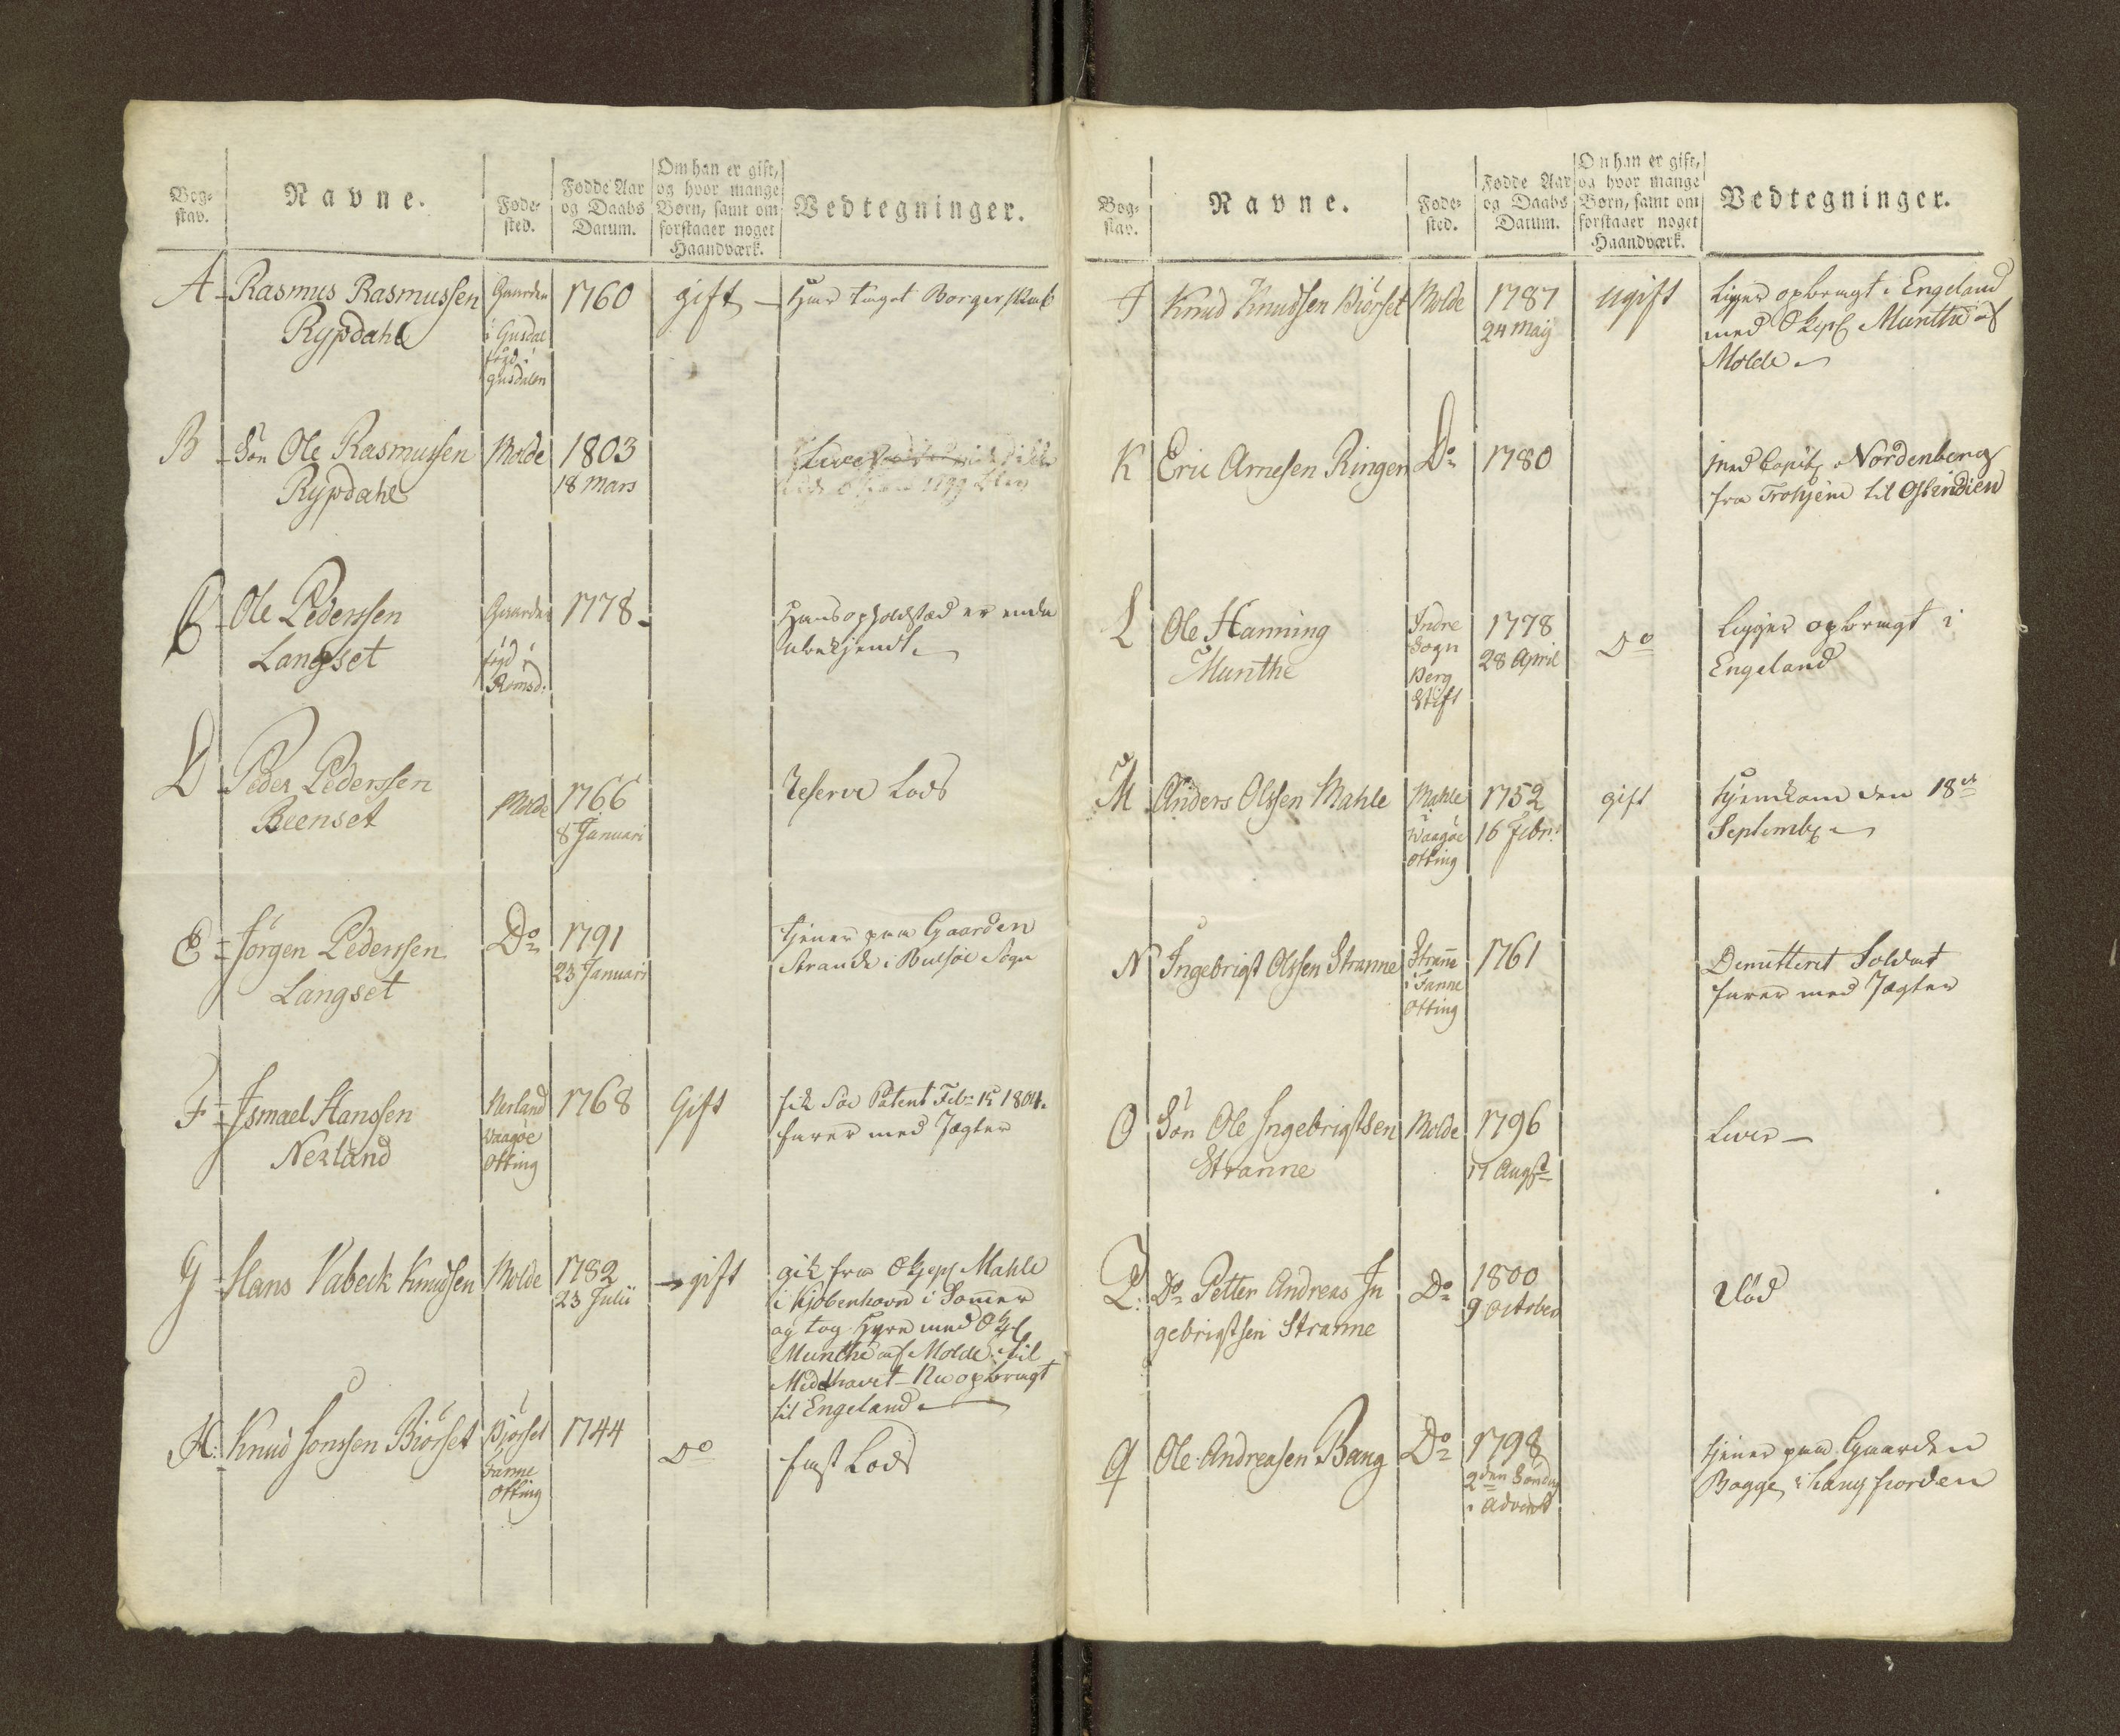 Bog-
stav.
Navne.
Føde-
sted.
Fødde Aar
og Daabs
Datum.
Om han er gift,
og hvor mange
Børn, samt om
forstaaer noget
Haandværk.
Vedtegninger.
A Rasmus Rasmussen
Rypdahl
Gaarden
i Gusdal
fogd. i
gusdalen
1760
gift
Har taget Borgerskab
B Søn Ole Rasmussen
Rypdahl
Molde
1803
18 Mars
Lever
C Ole Pederssen
Langset
Gaarden
fogd i
Romsd:
1778
Hans opholdsted er endu
ubekjendt
D Peder Pederssen
Reenset
Molde
1766
8 Januari
Reserve Lods
E Jörgen Pederssen
Langset
Do
1791
23 Januari
tjener paa Gaarden
Strande i Bolsöe Sogn
F Ismael Hanssen
Nerland
Nerland
Vaagöe
Otting
1768
Gift
fik Söe Patent Febr 15 1804.
farer med Jægter
G Hans Vabeck Knudsen
Molde
1782
23 Julii
gift
gik fra Skyps Mahle
i Kjöbenhavn i Sommer
og tog Hyre med Skpr
Munthe af Molde til
Middhavet - Nu opbragt
til Engeland
H: Knud Jonssen Biörset
Bjørset
Fanne
Otting
1744
Do
fast Lods
Bog-
stav.
Navne.
Føde-
sted.
Fødde Aar
og Daabs
Datum.
Om han er gift,
og hvor mange
Børn, samt om
forstaaer noget
Haandværk.
Vedtegninger.
J Knud Knudssen Biörset
Molde
1787
24 Maij
ugift
Ligger opbragt i Engeland
med Skpr Munthe af
Molde
K Eric Arnesen Ringen
Do
1780
med Capit Nordenberg
fra Trohjem til Ostindien
L Ole Hanning
Munthe
Indre
Sogn
Berg
Stift
1778
28 April
Do
Ligger opbragt i
Engeland
M Anders Olssen Mahle
Mahle
i Vaagöe
Otting
1752
16 Febr:
gift
Hjemkom den 18de
Septembr
N Ingebrigt Olssen Stranne
Stranne
i Fanne
Otting
1761
Demitteret Soldat
farer med Jægter
O Søn Ole Ingebrigtsen
Stranne
Molde
1796
17 Augst
Lever
P: Do Petter Andreas In
gebrigtsen Stranne
Do
1800
9 October
Död
Q Ole Andreasen Bang
Do
1798
2den Söndag
i Advent
tjener paa Gaarden
Bogge, i Langfiorden